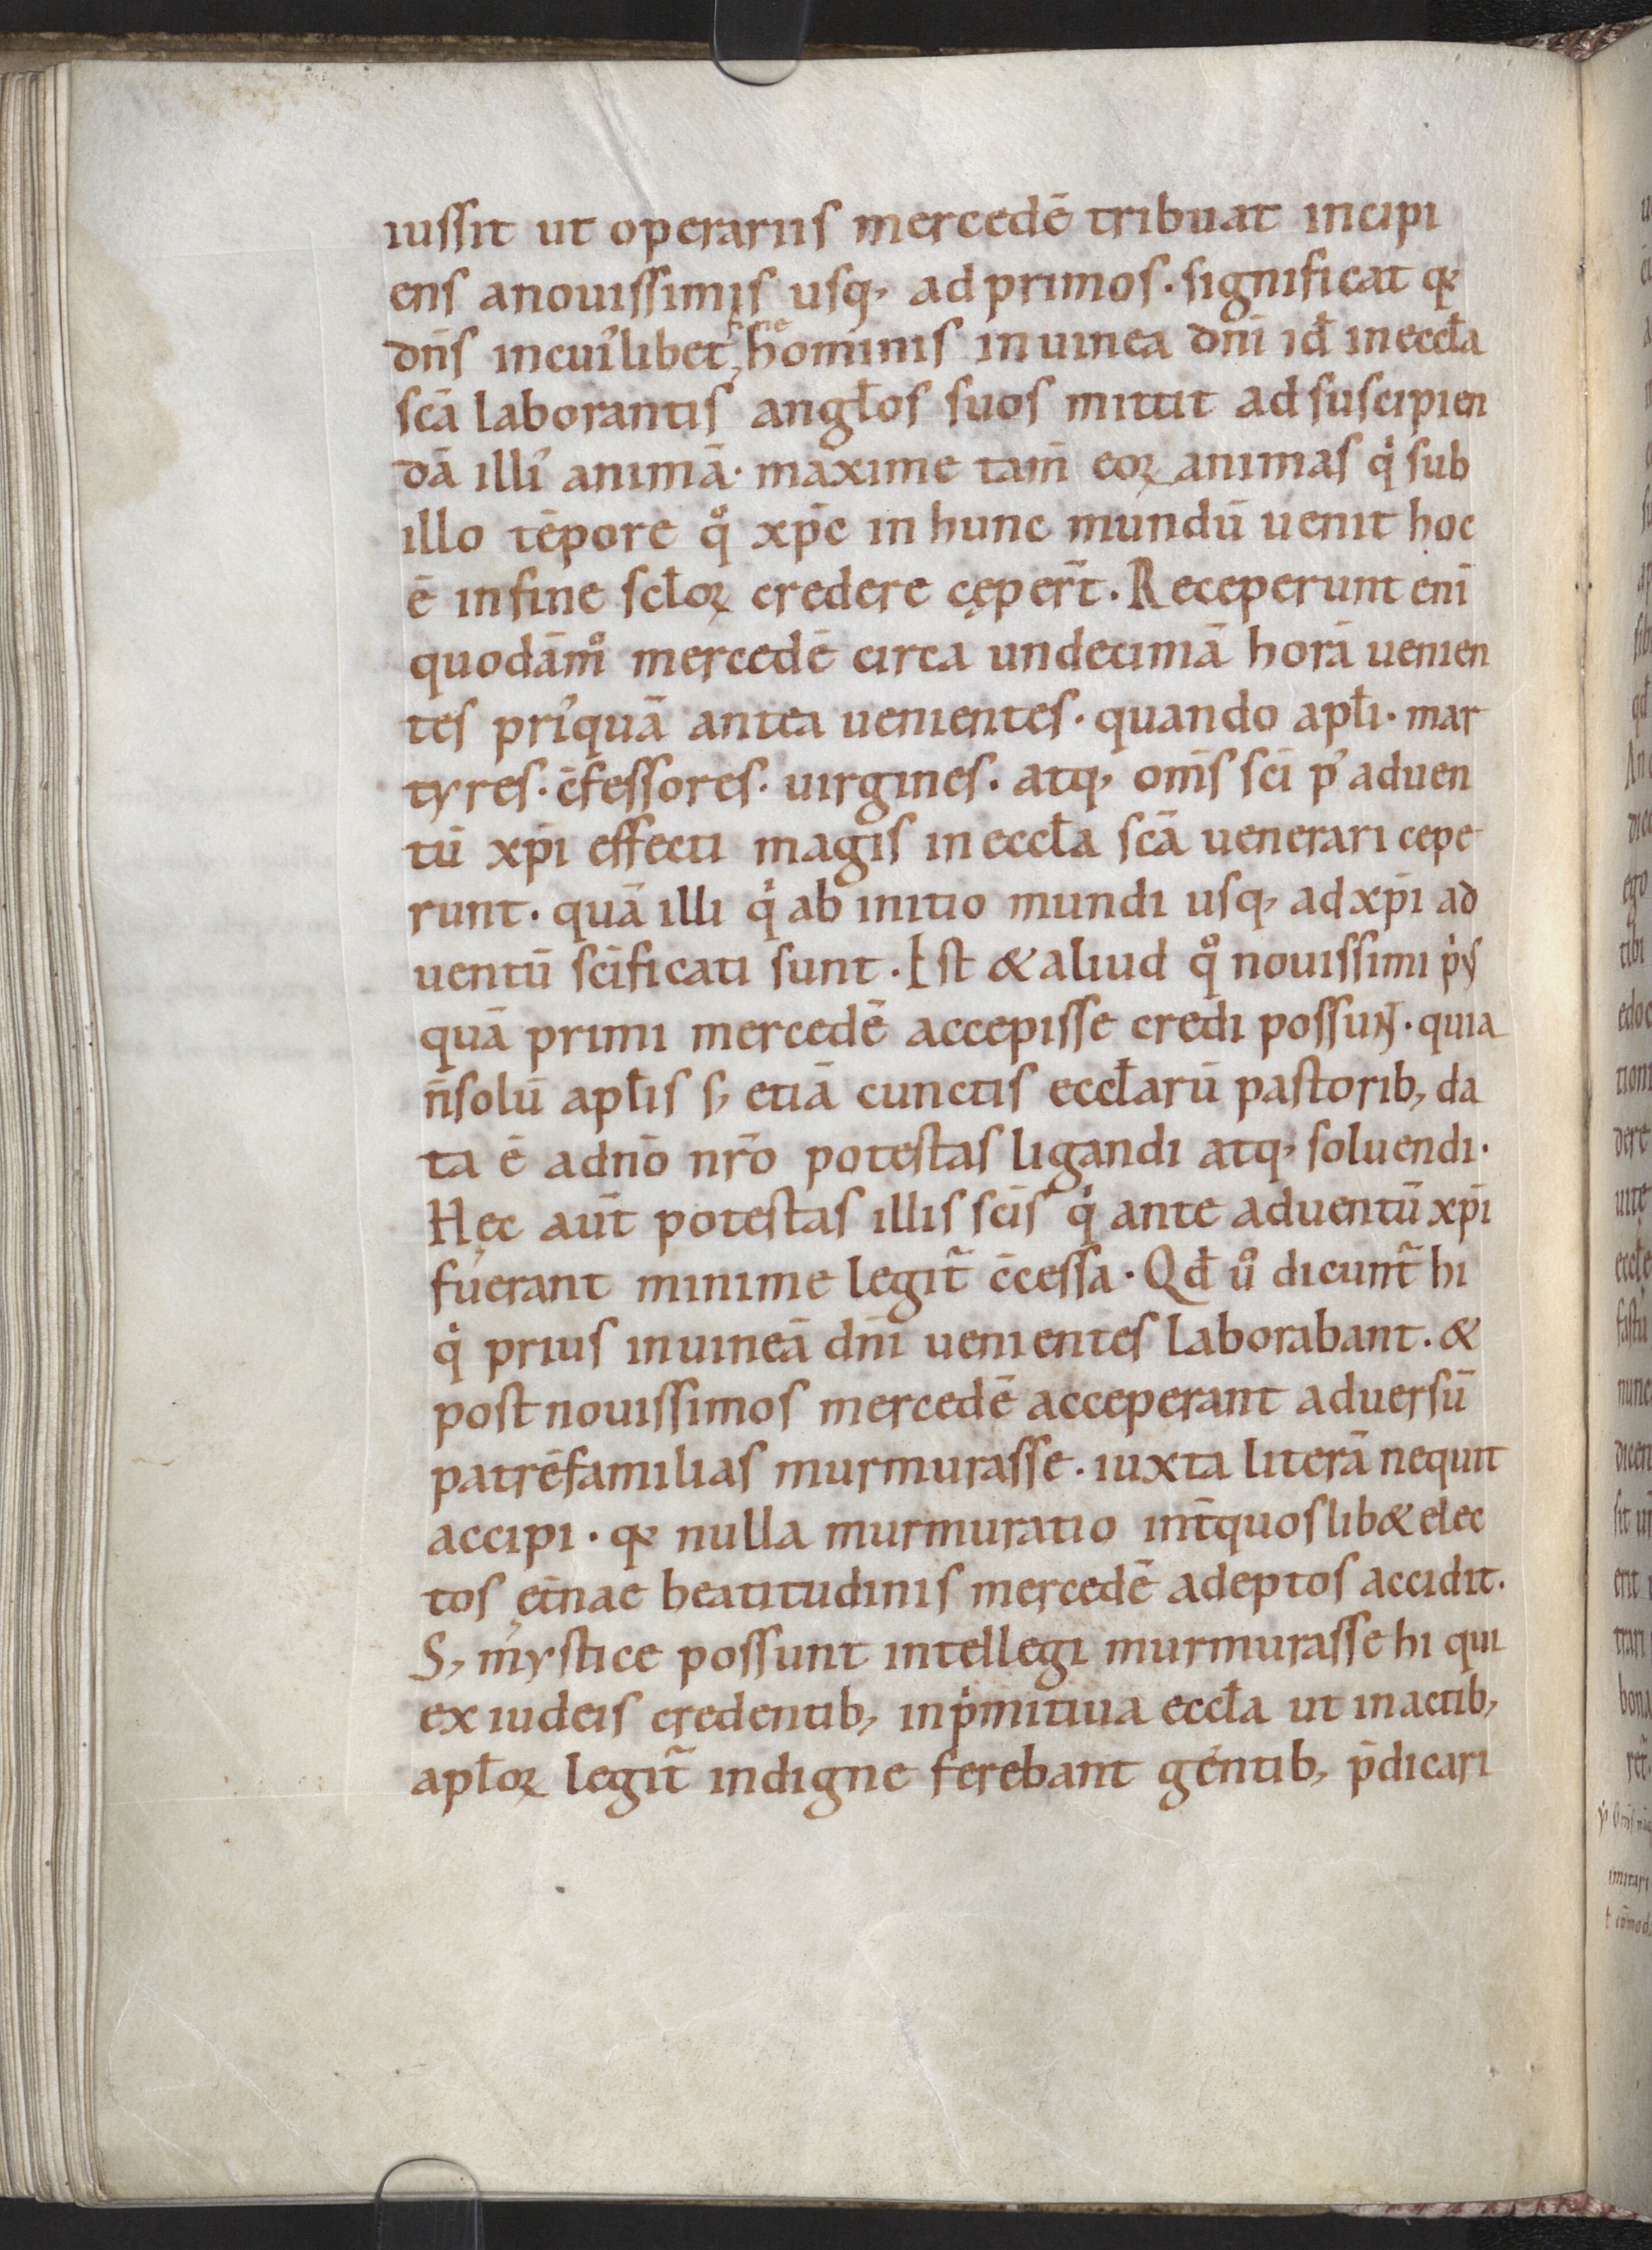 iussit ut operariis mercedē tribuat incipi
ens anouissimis usq, ad primos. significat qꝫ
dñs incuilibet fine hominis inuinea dñi id̄ in eccl̄a
scā laborantis angl̄os suos mittit ad suscipien
dā illi' animā. maxime tam̄ eoꝝ animas qͥ sub
illo tēpore qͦ xp̄c in hunc mundū uenit hoc
ē infine scl̄oꝝ credere cęper̄t. Receperunt eni̅
quodāmͦ mercedē circa undecimā horā uenien
tes pri'quā antea uenientes. quando apl̄i. mar
tyres. c̄fessores. uirgines. atq, om̄s sc̄i p' aduen
tū xp̄i effecti magis in eccl̄a scā uenerari cepe
runt. quā illi qͥ ab initio mundi usq, ad xp̄i ad
uentū sc̄ificati sunt. Est & aliud qͦ nouissimi pͥꝰ
quā primi mercedē accepisse credi possunt. quia
n̄solū apl̄is s, etiā cunctis eccl̄arū pastorib, da
ta ē adn̄o nr̄o potestas ligandi atq, soluendi.
Hęc aūt potestas illis sc̄is qͥ ante aduentū xp̄i
fuerant minime legit̃ c̄cessa. Qd̄ uͦ dicunt̃ hi
qͥ prius inuineā dn̄i uenientes laborabant. &
post nouissimos mercedē acceperant aduersū
patrēfamilias murmurasse. iuxta literā nequit
accipi. qꝫ nulla murmuratio int̄quoslib& elec
tos ęt̄nae beatitudinis mercedē adeptos accidit.
S, mystice possunt intellegi murmurasse hi qui
ex iudeis credentib, inpͥmitiua eccl̄a ut in actib,
apl̄oꝝ legit̃ indigne ferebant gentib, p̄dicari